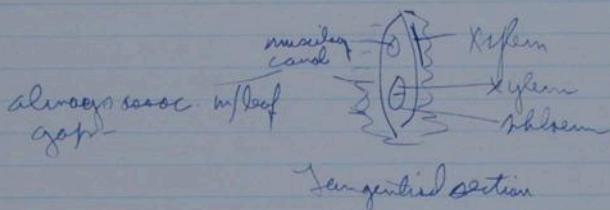 mucilag
canal
Xylem
xylem
phloem
always assoc. w/leaf
gap-
Tangential section